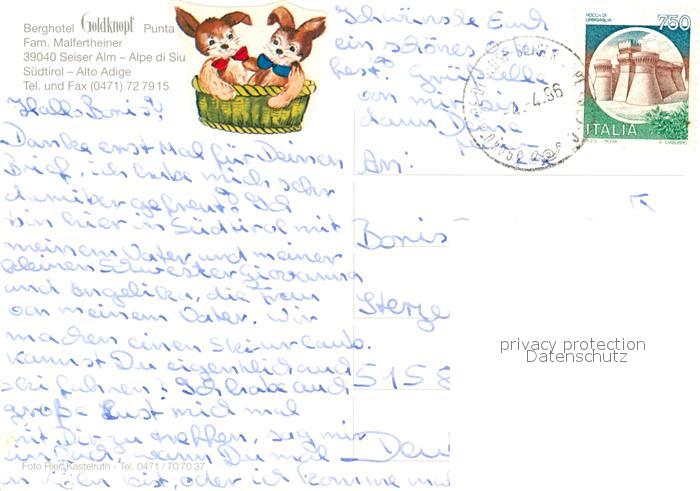 Berghotel Goldknopf Punta
Fam. Malfertheiner
39040 Seiser Alm – Alpe di Siu
Südtirol – Alto Adige
Tel. und Fax (0471) 72 79 15
Hallo Boris!
Danke erst Mal für Deinen
Brief, ich habe mich sehr
darüber gefreut! Ich
bin hier in Südtirol mit
meinem Vater und meiner
kleinen Schwester Giovanna
und Angelika, die Frau
von meinem Vater. Wir
machen einen Skiurlaub.
Kannst Du eigentlich auch
Ski fahren? Ich habe auch
große Lust mich mal
mit Dir zu treffen, sag mir
einfach, wann Du mal
in Köln bist, oder ich komme mal
Foto Rier, Kastelruth - Tel. 0471 / 70 70 37
Schwünsche Euch
ein schönes
fest! Grüß alle
von mir
dann Deine
An:
Boris
Sterze
5158
Deu
4.-4.96
ROCCA DI
URBISAGLIA
750
ITALIA
I.P.Z.S. - ROMA
A. CIABURRO
privacy protection
Datenschutz